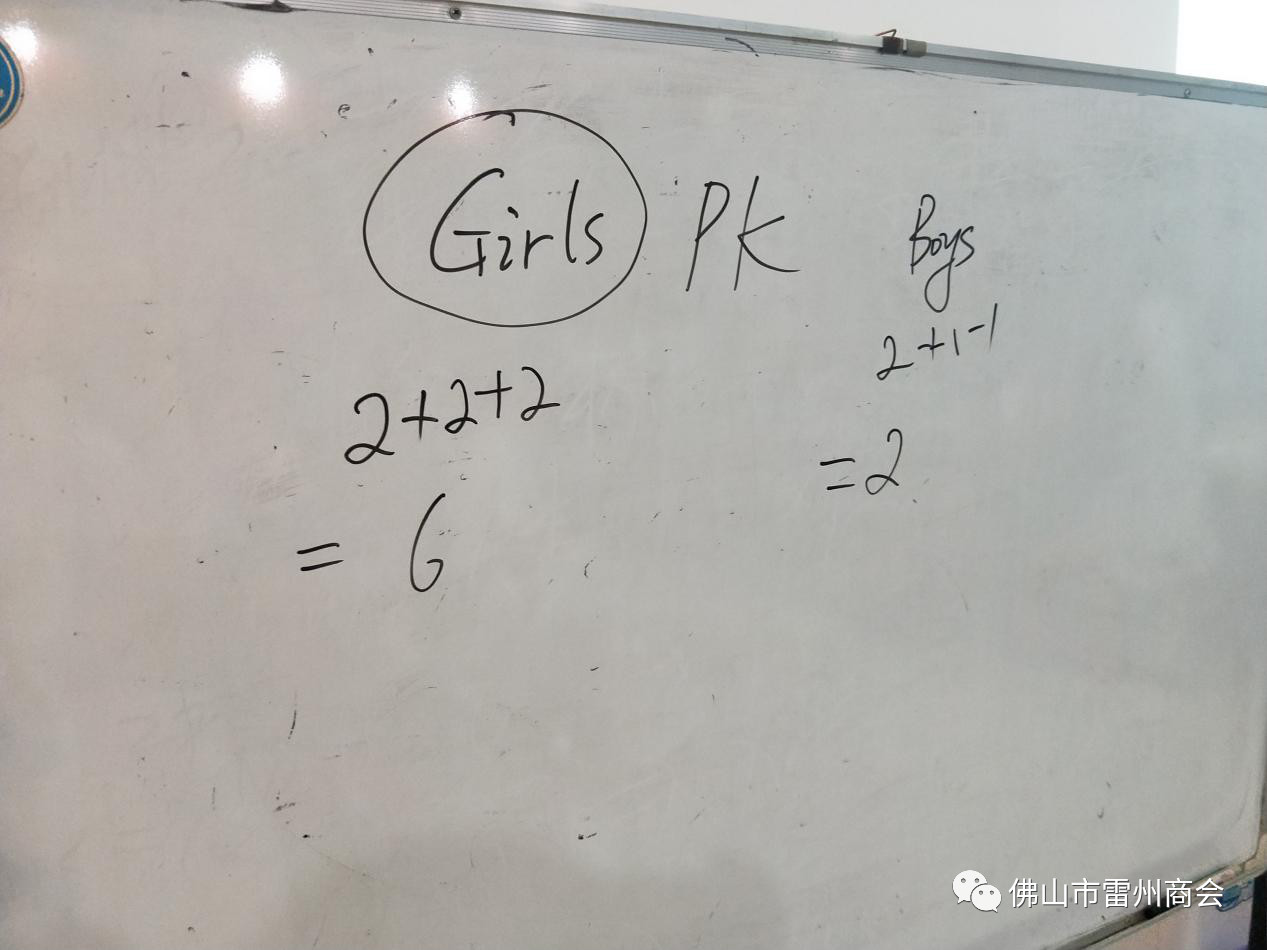 Girls PK Boys
2+2+2
2+1-1
= 6
=2
佛山市雷州商会